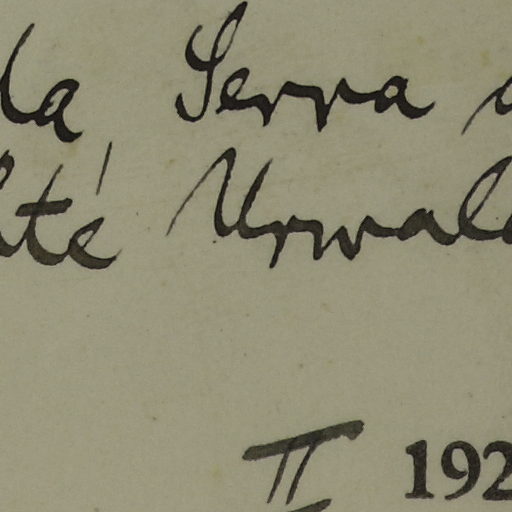 la, Serra
té Urwal
II 192